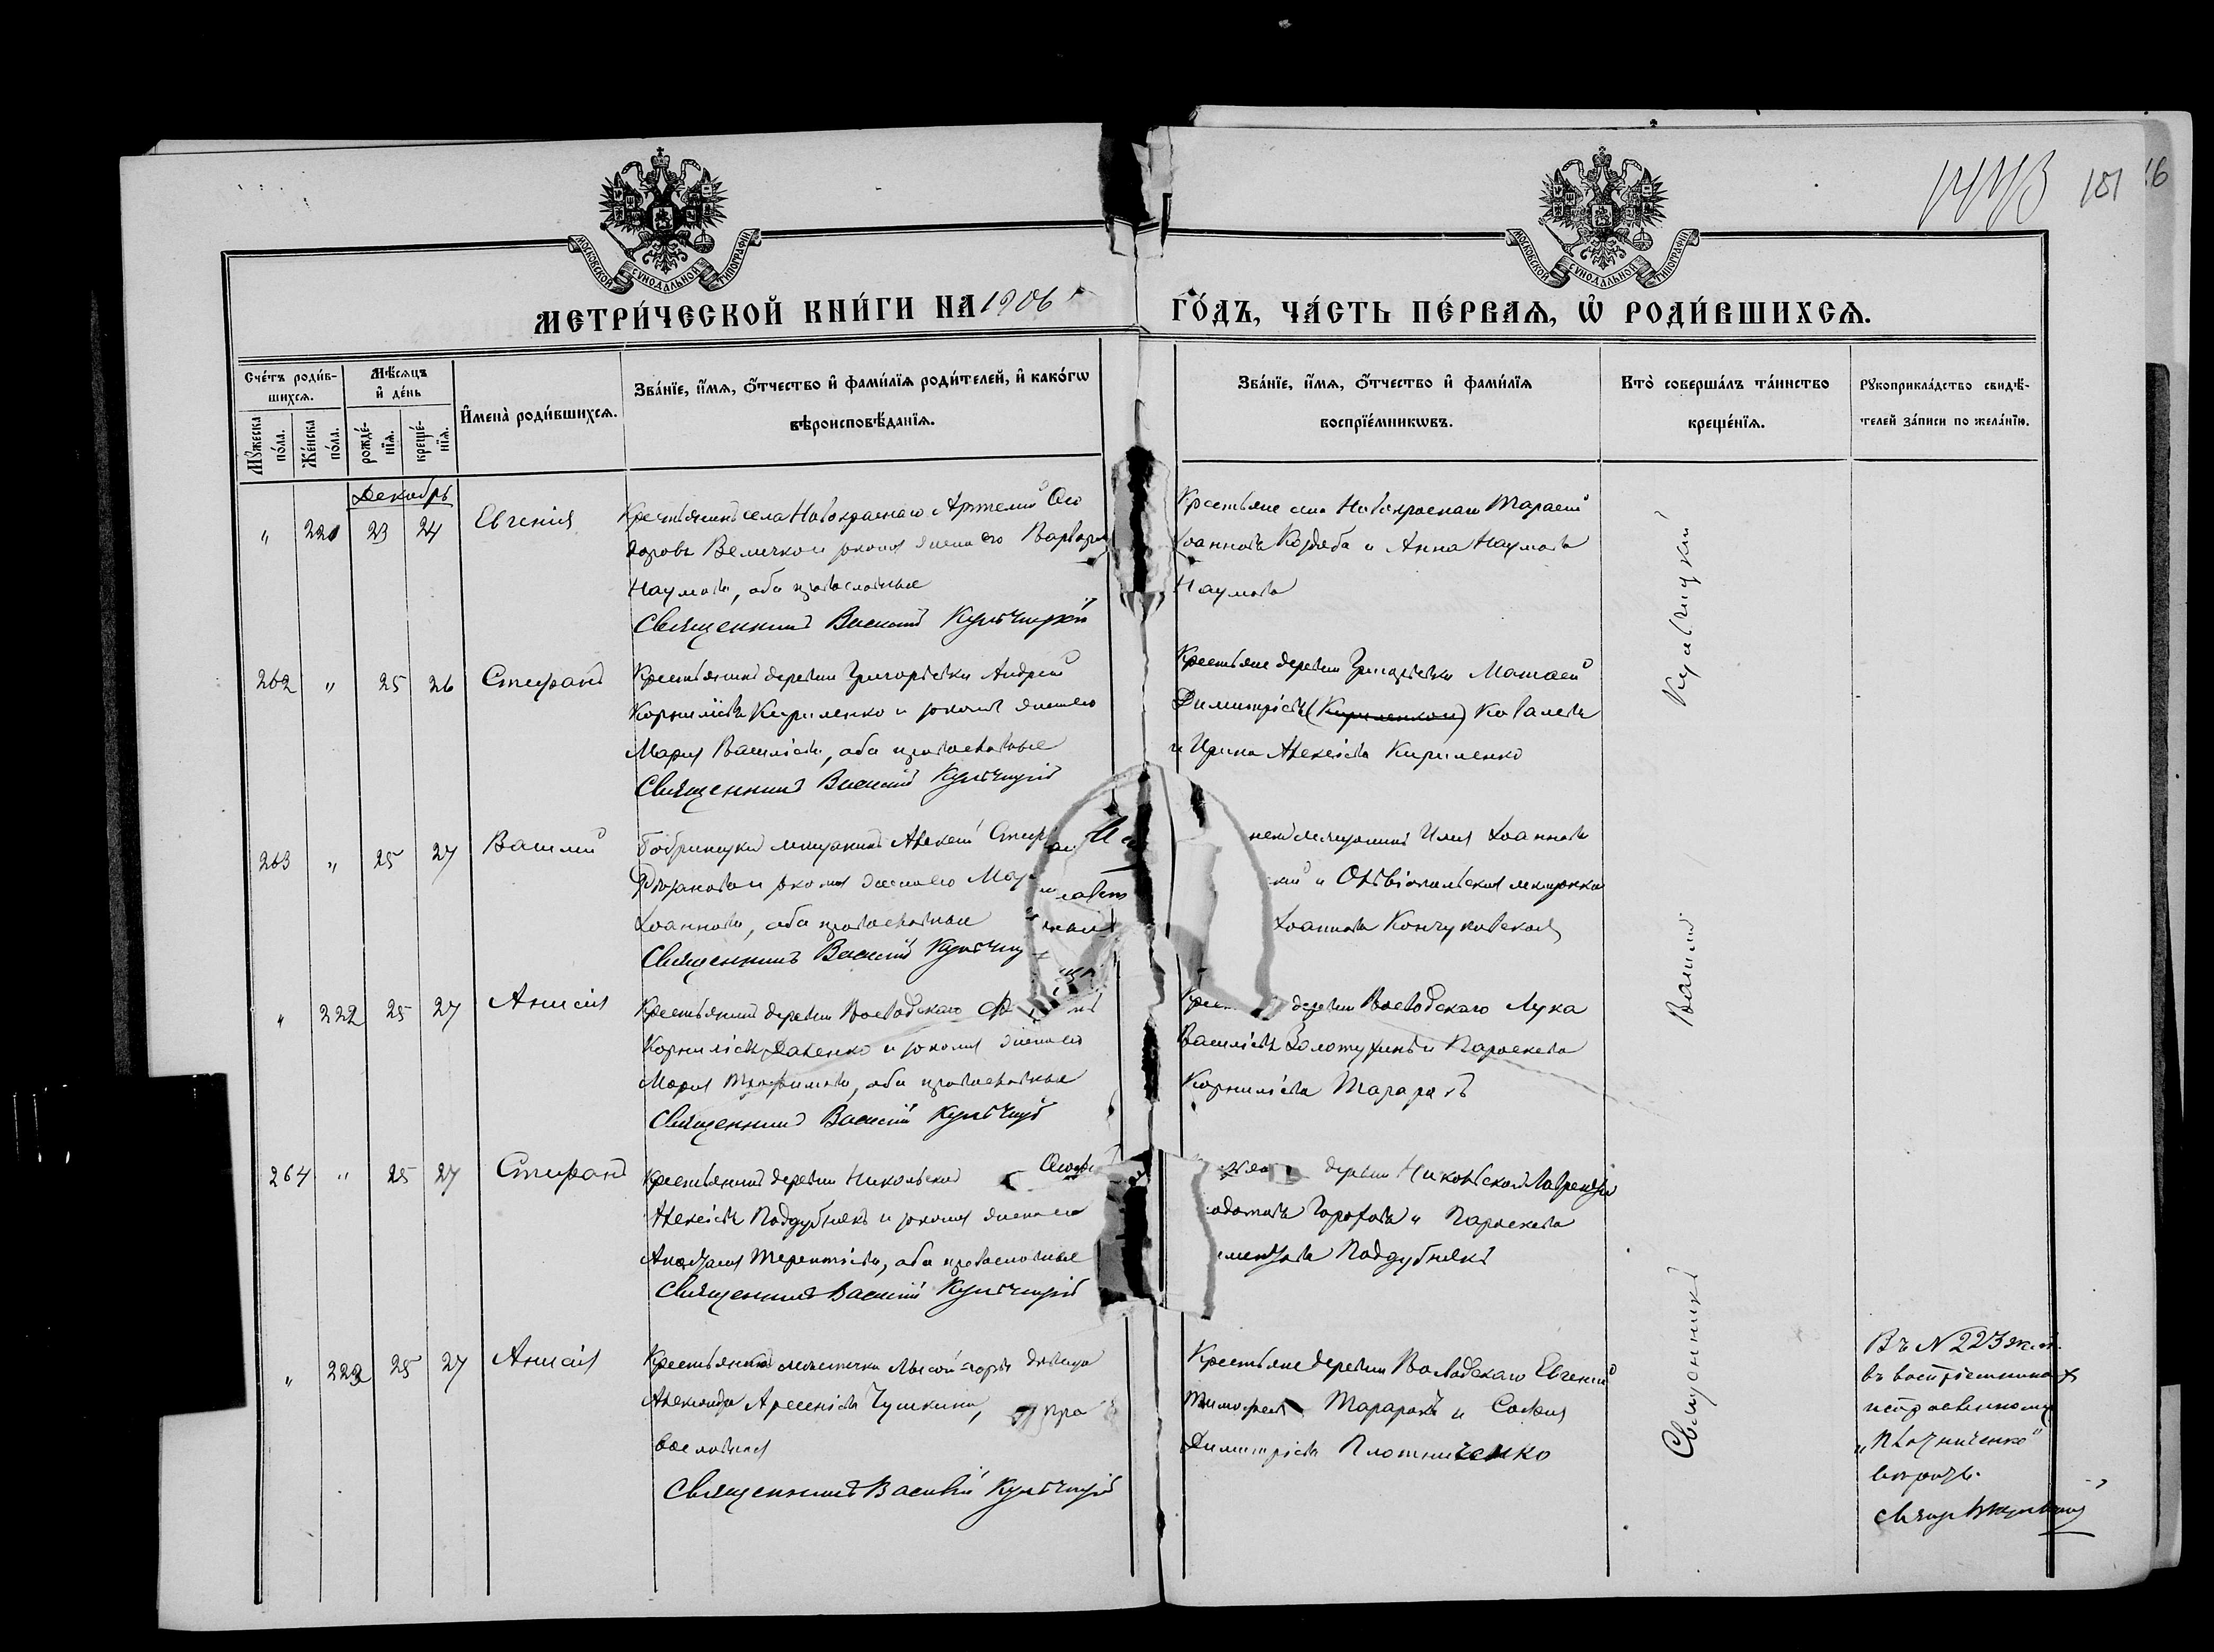 1906
151
16
МОСКОВСКОЙ СѴНОДАЛЬНОЙ ТИПОГРАФІИ
МОСКОВСКОЙ СѴНОДАЛЬНОЙ ТИПОГРАФІИ
МЕТРИ́ЧЕСКОЙ КНИ́ГИ НА 1906 ГО́ДЪ, ЧА́СТЬ ПЕ́РВАѦ, Ѡ РОДИ́ВШИХСѦ.
Сче́тъ роди́в-
шихсѧ.
Мꙋжеска по́ла.
Же́нска по́ла.
Мѣ́сѧцъ
и҆ де́нь
рожде́-
нїѧ.
креще́-
нїѧ.
И҆мена̀ роди́вшихсѧ.
Зва́нїе, и҆́мѧ, ѻ҆́тчество и҆ фами́лїѧ роди́телей, и҆ како́гѡ
вѣроисповѣ́данїѧ.
Зва́нїе, и҆́мѧ, ѻ҆́тчество и҆ фами́лїѧ
воспрїе́мникѡвъ.
Кто̀ соверша́лъ та́инство
креще́нїѧ.
Рꙋкоприкла́дство свидѣ́-
телей за́писи по жела́нїю.
Декабрь
" 221 23 24 Евгенія
Крестьянинъ села Новокраснаго Артемій Ѳео
доровъ Величко и законая жена его Варвара
Наумова, оба православные
Священникъ Василій Кульчицкій
Крестьяне села Новокраснаго Тарасій
Іоанновъ Кордяба и Анна Наумова
Наумова
262 " 25 26 Стефанъ
Крестьянинъ деревни Григорьевки Андрей
Корниліевъ Кириленко и законая жена его
Марія Василіева, оба православные
Священникъ Василій Кульчицкій
Крестьяне деревни Григорьевки Матѳей
Димитріевъ (Кириленкои) Ковалевъ
и Ирина Алексіева Кириленко
263 " 25 27 Василій
Бобринецкій мещанинъ Алексій
и законая жена его
Іоаннова, оба православные
Священникъ Василій
мещанинъ Илія Іоанновъ
и Ольвіопольская мещанка
Іоаннова Кончуковская
" 222 25 27 Анисія
Крестьянинъ деревни Воеводскаго
Корниліевъ Даценко и законая жена его
Марія Трофимова, оба православные
Священникъ Василій Кульчицкій
деревни Воеводскаго Лука
Василіевъ Золотухинъ и Параскева
Корниліева Тараракъ
264 " 25 27 Стефанъ
Крестьянинъ деревни Никольской
Алексіевъ Поддубнякъ и законая жена его
Терентіева, оба православные
Священникъ Василій Кульчицкій
деревни Никольской Лаврентій
Гороховъ и Параскева
Поддубнякъ
" 223 25 27 Анисія
Крестьянка местечка Лысой-горы девица
Александра Арсеніева Чушкина, пра
вославная
Священникъ Василій Кульчицкій
Крестьяне деревни Воеводскаго Евгеній
Тараракъ и Софія
Димитріева Плотниченко
Священникъ Василій Кульчицкій
Въ № 223
въ воспріемникахъ
исправленному
"Плотниченко"
верить.